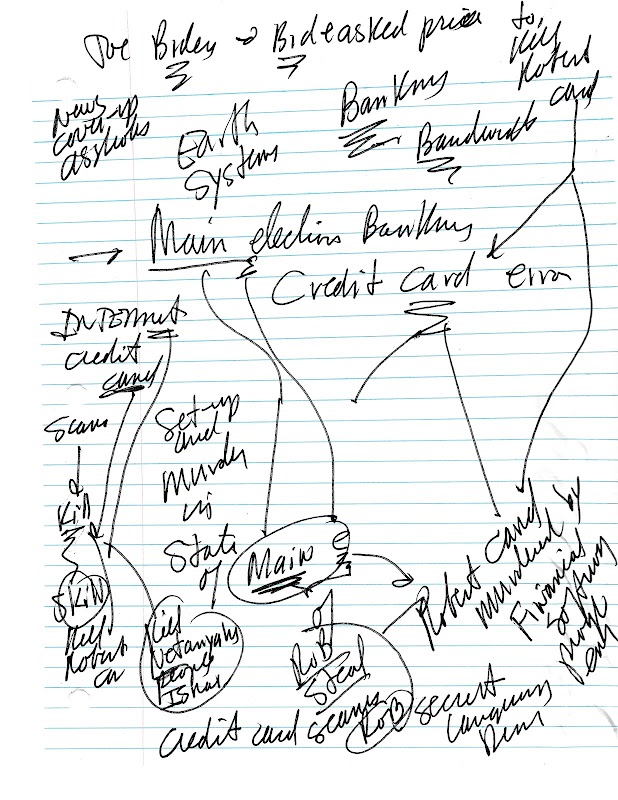 Joe Biden → Bid e asked price to,
Kill
Robert
card
News
cover-up
assholes
Earth
Systems
Banking
Bandwidth
→ Main election Banking
Credit card error
INTERNET
credit
card
Scans
Kill
SKill
Kill
Robert
Ca
Set-up
and
Murder
in
State
of
Main
Kill
Netanyahu
people
Robert Card
murdered by
Financial
people
of
RoB
Steal
credit card scams
RoB secret